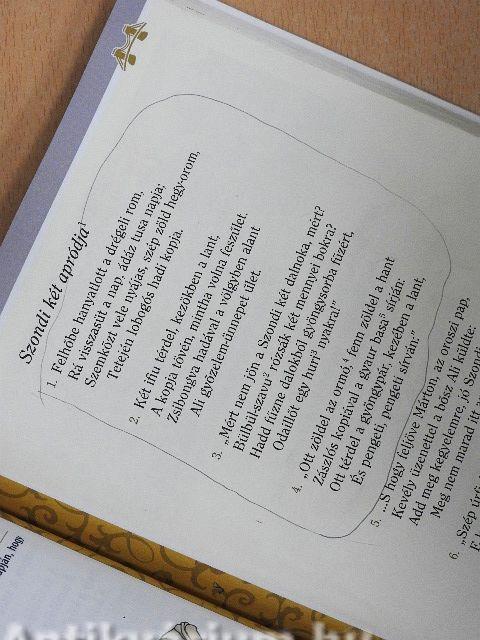 Szondi két apródja¹
1. Felhőbe hanyatlott a drégeli rom,
Rá visszasüt a nap, ádáz tusa napja;
Szemközt vele nyájas, szép zöld hegy-orom,
Tetején lobogós hadi kopja.
2. Két ifiu térdel, kezökben a lant,
A kopja tövén, mintha volna feszűlet.
Zsibongva hadával a völgyben alant
Ali győzelem-ünnepet űlet.
3. „Mért nem jön a Szondi két dalnoka, mért?
Bülbül-szavu² rózsák két mennyei bokra?
Hadd fűzne dalokból gyöngysorba füzért,
Odaillőt egy huri³ nyakra!"
4. „Ott zöldel az ormó,⁴ fenn zöldel a hant
Zászlós kopiával a gyaur basa⁵ sírján:
Ott térdel a gyöngypár, kezében a lant,
És pengeti, pengeti sírván:"
5. ...S hogy feljöve Márton, az oroszi pap,
Kevély üzenettel a bősz Ali küldte:
Add meg kegyelemre, jó Szondi
Meg nem marad itt
6. „Szép
apján, hogy
Antikvarium.hu